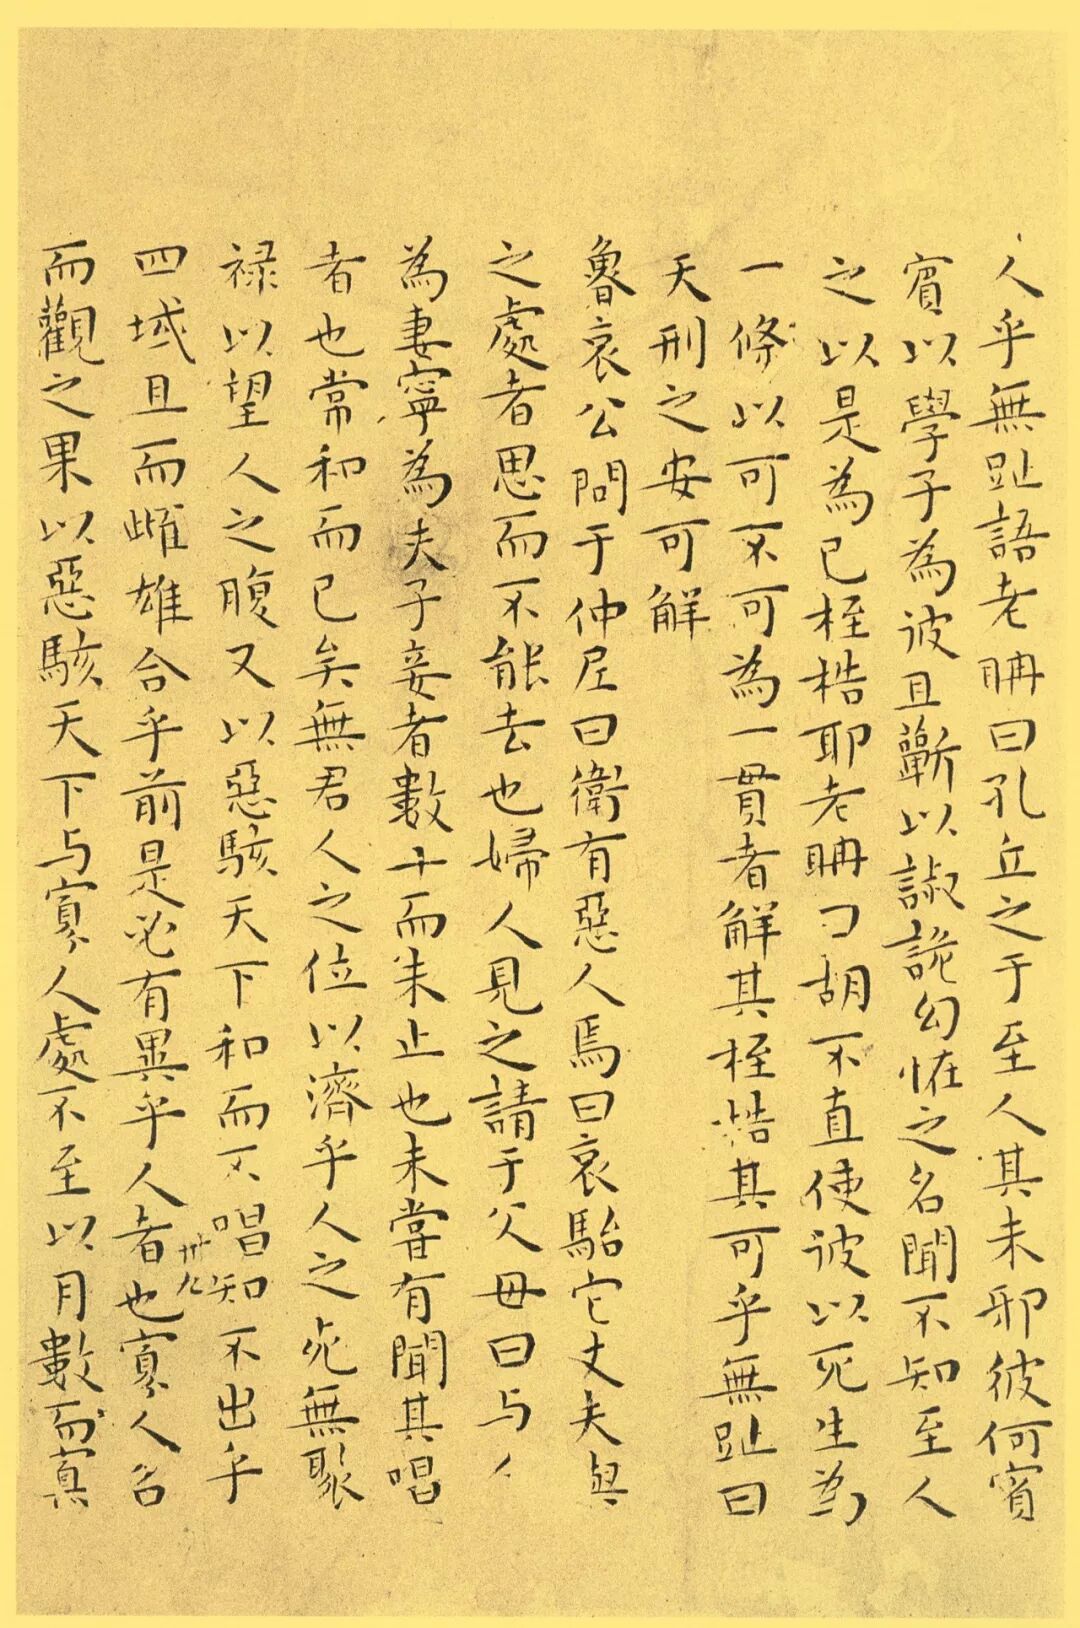 人乎無趾語老聃曰孔丘之于至人其未邪彼何賓
賓以學子為彼且蘄以諔詭幻怪之名聞不知至人
之以是為已桎梏耶老聃曰胡不直使彼以死生為
一條以可不可為一貫者解其桎梏其可乎無趾曰
天刑之安可解
魯哀公問于仲尼曰衛有惡人焉曰哀駘它丈夫與
之處者思而不能去也婦人見之請于父母曰与人
為妻寧為夫子妾者數十而未止也未嘗有聞其唱
者也常和而已矣無君人之位以濟乎人之死無聚
祿以望人之腹又以惡駭天下和而不唱知不出乎
四域且而雌雄合乎前是必有異乎人者也寡人召
而觀之果以惡駭天下与寡人處不至以月數而寡
卅九